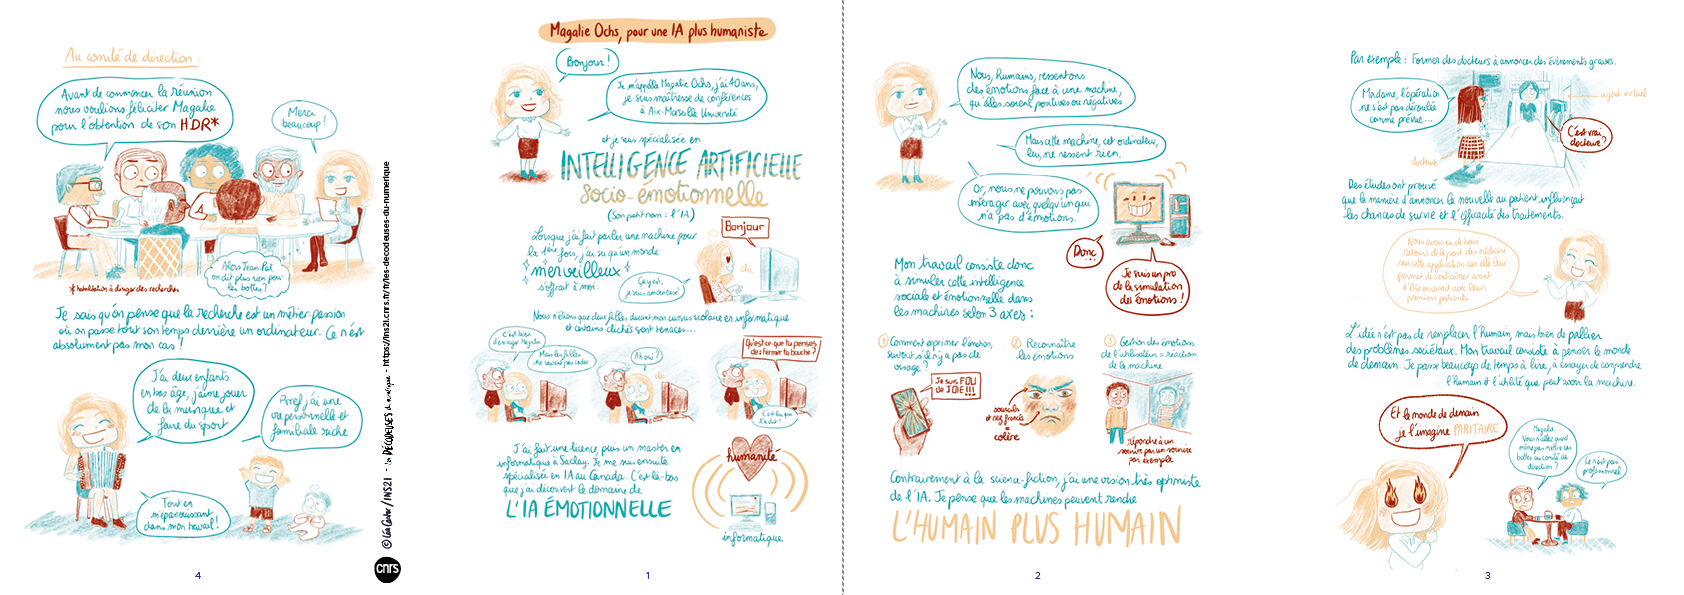 Au comité de direction :
Avant de commencer la réunion
nous voulions féliciter Magalie
pour l'obtention de son HDR*
Merci
beaucoup !
Alors Jean-Pat,
on dit plus rien pour
les bottes ?
*habilitation à diriger des recherches
Je sais qu'on pense que la recherche est un métier-passion
où on passe tout son temps derrière un ordinateur. Ce n'est
absolument pas mon cas !
J'ai deux enfants
en bas âge, j'aime jouer
de la musique et
faire du sport
Bref, j'ai une
vie personnelle et
familiale riche
Tout en
m'épanouissant
dans mon travail !
4
© Léa Castor / INS2I - les DÉCODEUSES du numérique - https://ins2i.cnrs.fr/fr/les-decodeuses-du-numerique
cnrs
Magalie Ochs, pour une IA plus humaniste
Bonjour !
Je m'appelle Magalie Ochs, j'ai 40 ans,
je suis maîtresse de conférences
à Aix-Marseille Université
et je suis spécialisée en
INTELLIGENCE ARTIFICIELLE
socio-émotionnelle
(Son petit nom : l'IA)
Lorsque j'ai fait parler une machine pour
la 1ère fois, j'ai su qu'un monde
merveilleux
s'offrait à moi.
Bonjour
clic
Ça y est,
je suis amoureuse !
Nous n'étions que deux filles durant mon cursus scolaire en informatique
et certains clichés sont tenaces...
C'est bien
d'encager Magalie
Mais les filles
ne savent pas coder
Ah oui ?
Qu'est-ce que tu penses
de fermer ta bouche ?
J'ai fait une licence, puis un master en
informatique à Saclay. Je me suis ensuite
spécialisée en IA au Canada. C'est là-bas
que j'ai découvert le domaine de
L'IA ÉMOTIONNELLE
humanité
informatique
1
Nous, humains, ressentons
des émotions face à une machine,
qu'elles soient positives ou négatives
Mais cette machine, cet ordinateur,
lui, ne ressent rien.
Or, nous ne pouvons pas
interagir avec quelqu'un qui
n'a pas d'émotions.
Donc
...
Je suis un pro
de la simulation
des émotions !
Mon travail consiste donc
à simuler cette intelligence
sociale et émotionnelle dans
les machines selon 3 axes :
1 Comment exprimer l'émotion,
surtout s'il n'y a pas de
visage ?
Je suis FOU
de JOIE!!!
2 Reconnaître
les émotions
sourcils
et nez froncés
= colère
3 Gestion des émotions
de l'utilisateur & réaction
de la machine
répondre à un
sourire par un sourire
par exemple
Contrairement à la science-fiction, j'ai une vision très optimiste
de l'IA. Je pense que les machines peuvent rendre
L'HUMAIN PLUS HUMAIN
2
Par exemple : Former des docteurs à annoncer des événements graves.
Madame, l'opération
ne s'est pas déroulée
comme prévue...
agent virtuel
C'est vrai,
docteure ?
docteure
Des études ont prouvé
que la manière d'annoncer la nouvelle au patient influençait
les chances de survie et l'efficacité des traitements.
Nous avons eu de bons
retours de la part des médecins
sur cette application car elle leur
permet de s'entraîner avant
d'être en contact avec leurs
premiers patients
L'idée n'est pas de remplacer l'humain, mais bien de pallier
des problèmes sociétaux. Mon travail consiste à penser le monde
de demain. Je passe beaucoup de temps à lire, à essayer de comprendre
l'humain et l'utilité que peut avoir la machine.
Et le monde de demain
je l'imagine PARITAIRE
Magalie...
Vous n'allez quand
même pas mettre ces
bottes au comité de
direction ?
Ce n'est pas
professionnel
3